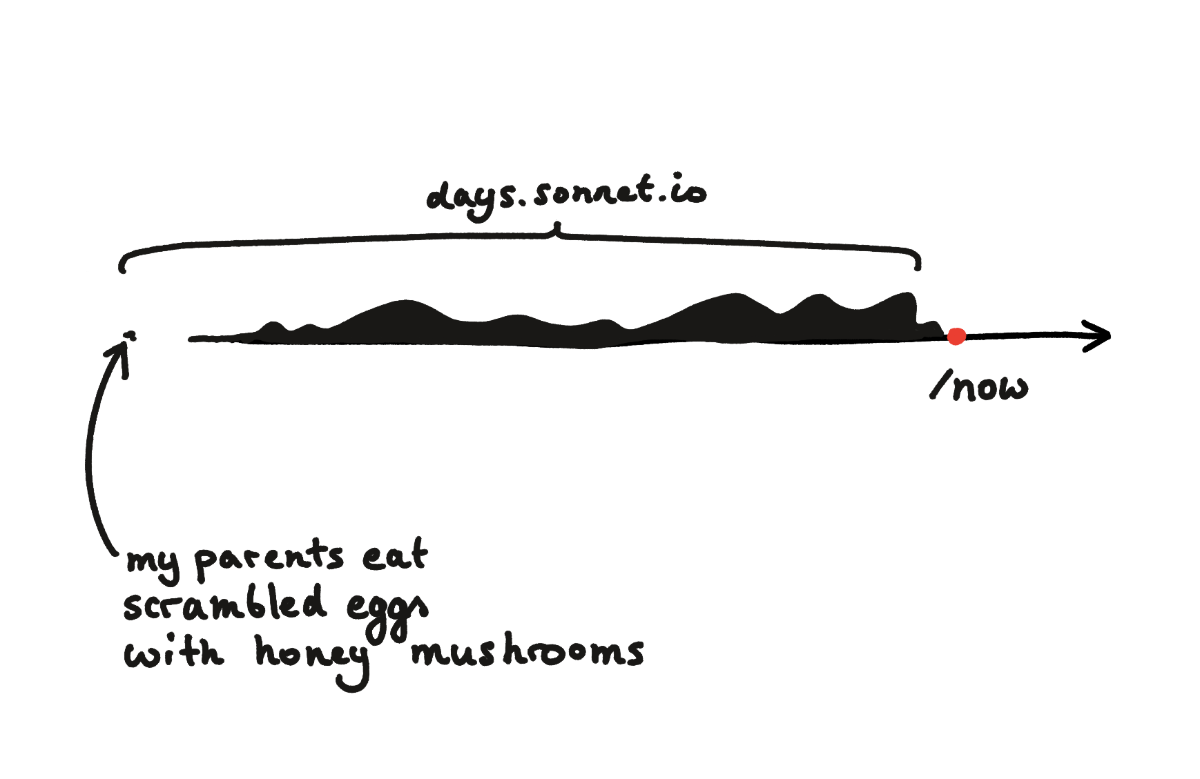 days.sonnet.io
/now
my parents eat
scrambled eggs
with honey mushrooms